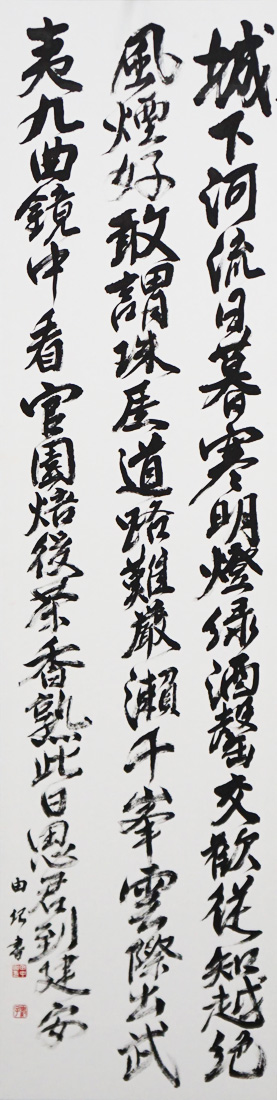 城下河流日暮寒明燈綠酒罄交歡從知越絕
風煙好敢謂珠厓道路難嚴瀨千峯雲際出武
夷九曲鏡中看官園焙後茶香熟此日思君到建安
由 書